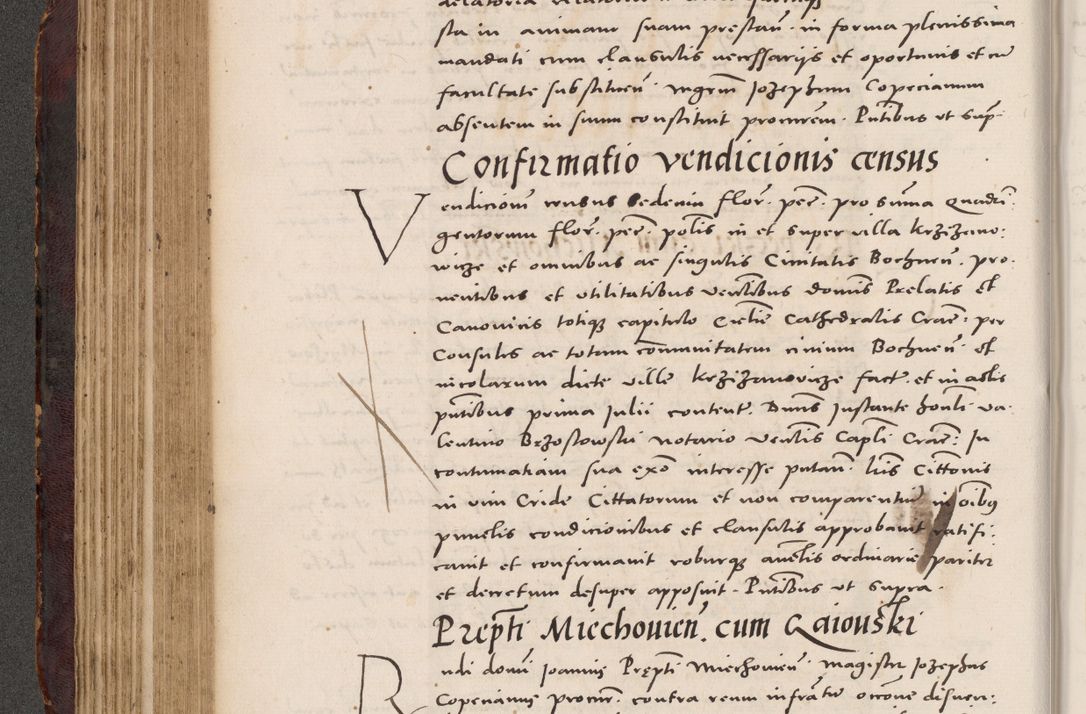 sta in animam suam prestan. in forma plenissima
mandati cum clausulis necessariis et oportunis et cu
facultate substituen. mgrm Jozephum Copecianum
absentem in suum constituit procurem. Pntibus ut sup.
Confirmatio vendicionis census
Vendicionis census sedecim flor. pec. pro summa Quadrin
gentorum flor. pec. polis in et super villa krzizano:
wicze et omnibus ac singulis Civitatis Bochnen. pro:
ventibus et utilitatibus venlibus dominis Prelatis et
Canonicis totiq capitulo Ecclie Cathedralis Crac: per
Consules ac totam communitatem civium Bochnen. et
incolarum dicte ville krzizanowicze fact. et in actis
pntibus prima Julii content. Dnus Instante honli va:
lentino Brzostowski notario venlis Capli Crac: In
contumatiam sua exo interesse putan. lris Cittonis
in vim Cride Cittatorum et non comparentiu in oibq
punctis condicionibus et clausulis approbavit ratifi:
cavit et confirmavit roburq autis ordinarie pariter
et decretum desuper apposuit. Pntibus ut supra.
Prepti Miechovien. cum Gaiouski
Rndi domi Joannis Prepti Miechovien. magister Jozephus
Copecianus procur. contra reum infratu occone disven: